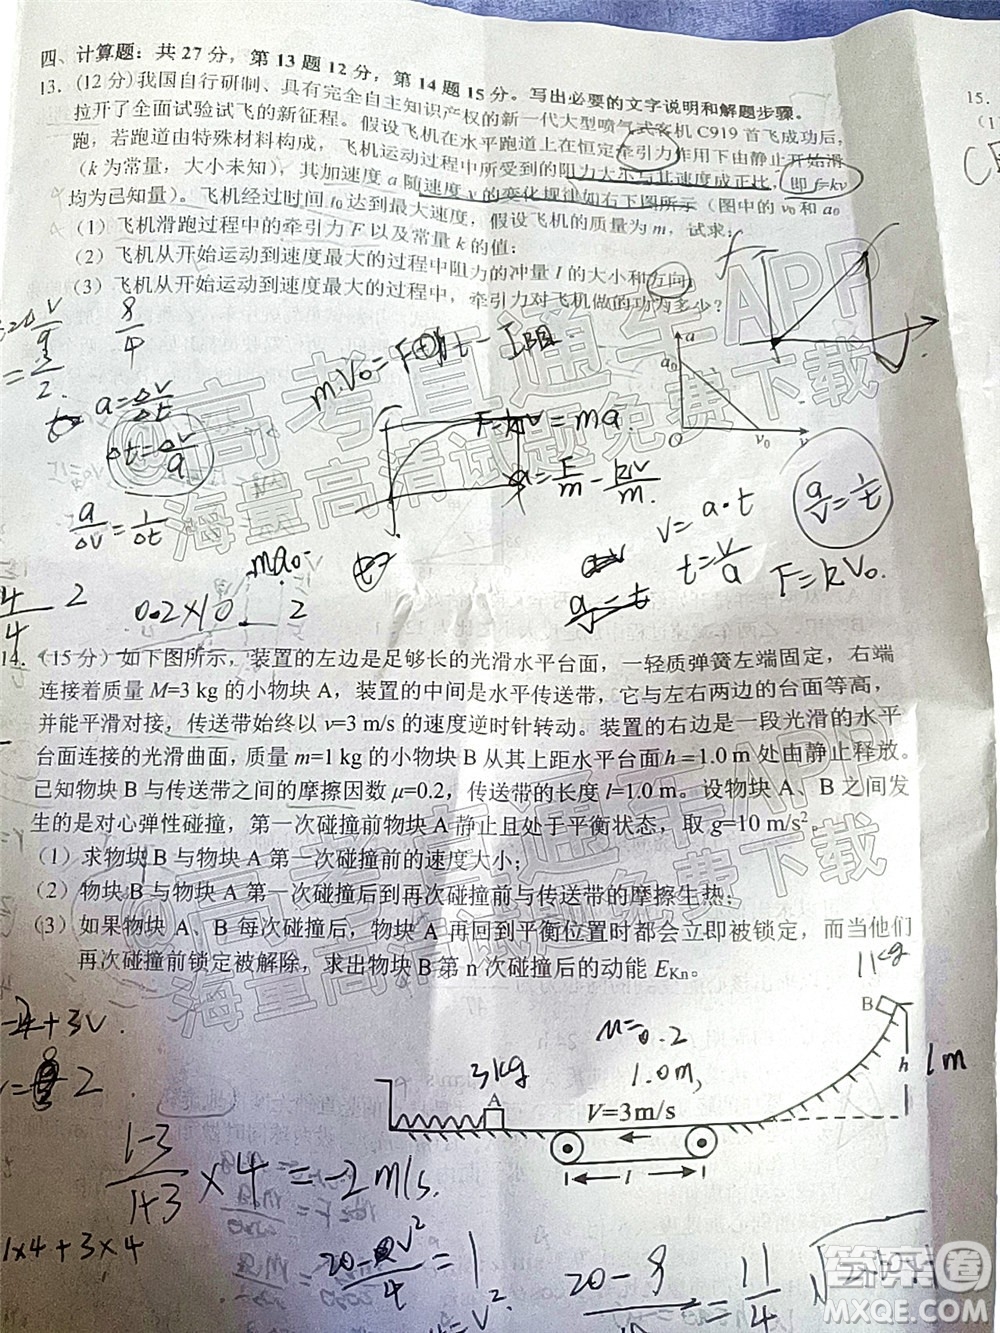 四、计算题：共27分，第13题12分，第14题15分。写出必要的文字说明和解题步骤。
13．(12分)我国自行研制、具有完全自主知识产权的新一代大型喷气式客机C919首飞成功后，
拉开了全面试验试飞的新征程。假设飞机在水平跑道上在恒定牵引力作用下由静止开始滑
跑，若跑道由特殊材料构成，飞机运动过程中所受到的阻力大小与其速度成正比，即 f=kv
（k为常量，大小未知），其加速度a随速度v的变化规律如右下图所示（图中的v₀和a₀
均为已知量）。飞机经过时间t₀达到最大速度，假设飞机的质量为m，试求：
（1）飞机滑跑过程中的牵引力F以及常量k的值；
（2）飞机从开始运动到速度最大的过程中阻力的冲量I的大小和方向；
（3）飞机从开始运动到速度最大的过程中，牵引力对飞机做的功为多少？
8
4
a
a₀
O
v₀
v
F-kv=ma.
a=F/m-kv/m.
a=Δv/Δt
Δt=Δv/a
a/Δv=1/Δt
v=a·t
t=v/a
a/v=1/t
F=kv₀.
ma₀=
0.2×10
2
14．（15分）如下图所示，装置的左边是足够长的光滑水平台面，一轻质弹簧左端固定，右端
连接着质量M=3 kg的小物块A，装置的中间是水平传送带，它与左右两边的台面等高，
并能平滑对接，传送带始终以v=3 m/s的速度逆时针转动。装置的右边是一段光滑的水平
台面连接的光滑曲面，质量m=1 kg的小物块B从其上距水平台面h=1.0 m处由静止释放。
已知物块B与传送带之间的摩擦因数μ=0.2，传送带的长度l=1.0 m。设物块A、B之间发
生的是对心弹性碰撞，第一次碰撞前物块A静止且处于平衡状态，取g=10 m/s²。
（1）求物块B与物块A第一次碰撞前的速度大小；
（2）物块B与物块A第一次碰撞后到再次碰撞前与传送带的摩擦生热；
（3）如果物块A、B每次碰撞后，物块A再回到平衡位置时都会立即被锁定，而当他们
再次碰撞前锁定被解除，求出物块B第n次碰撞后的动能 E_Kn。
1kg
B
h
1m
μ=0.2
1.0m,
3kg
A
V=3m/s
l
1-3/1+3×4=-2m/s.
1×4+3×4
20-8
11/4
高考直通车APP
海量高清试题免费下载
@高考直通车APP
海量高清试题免费下载
答案圈
MXQE.COM